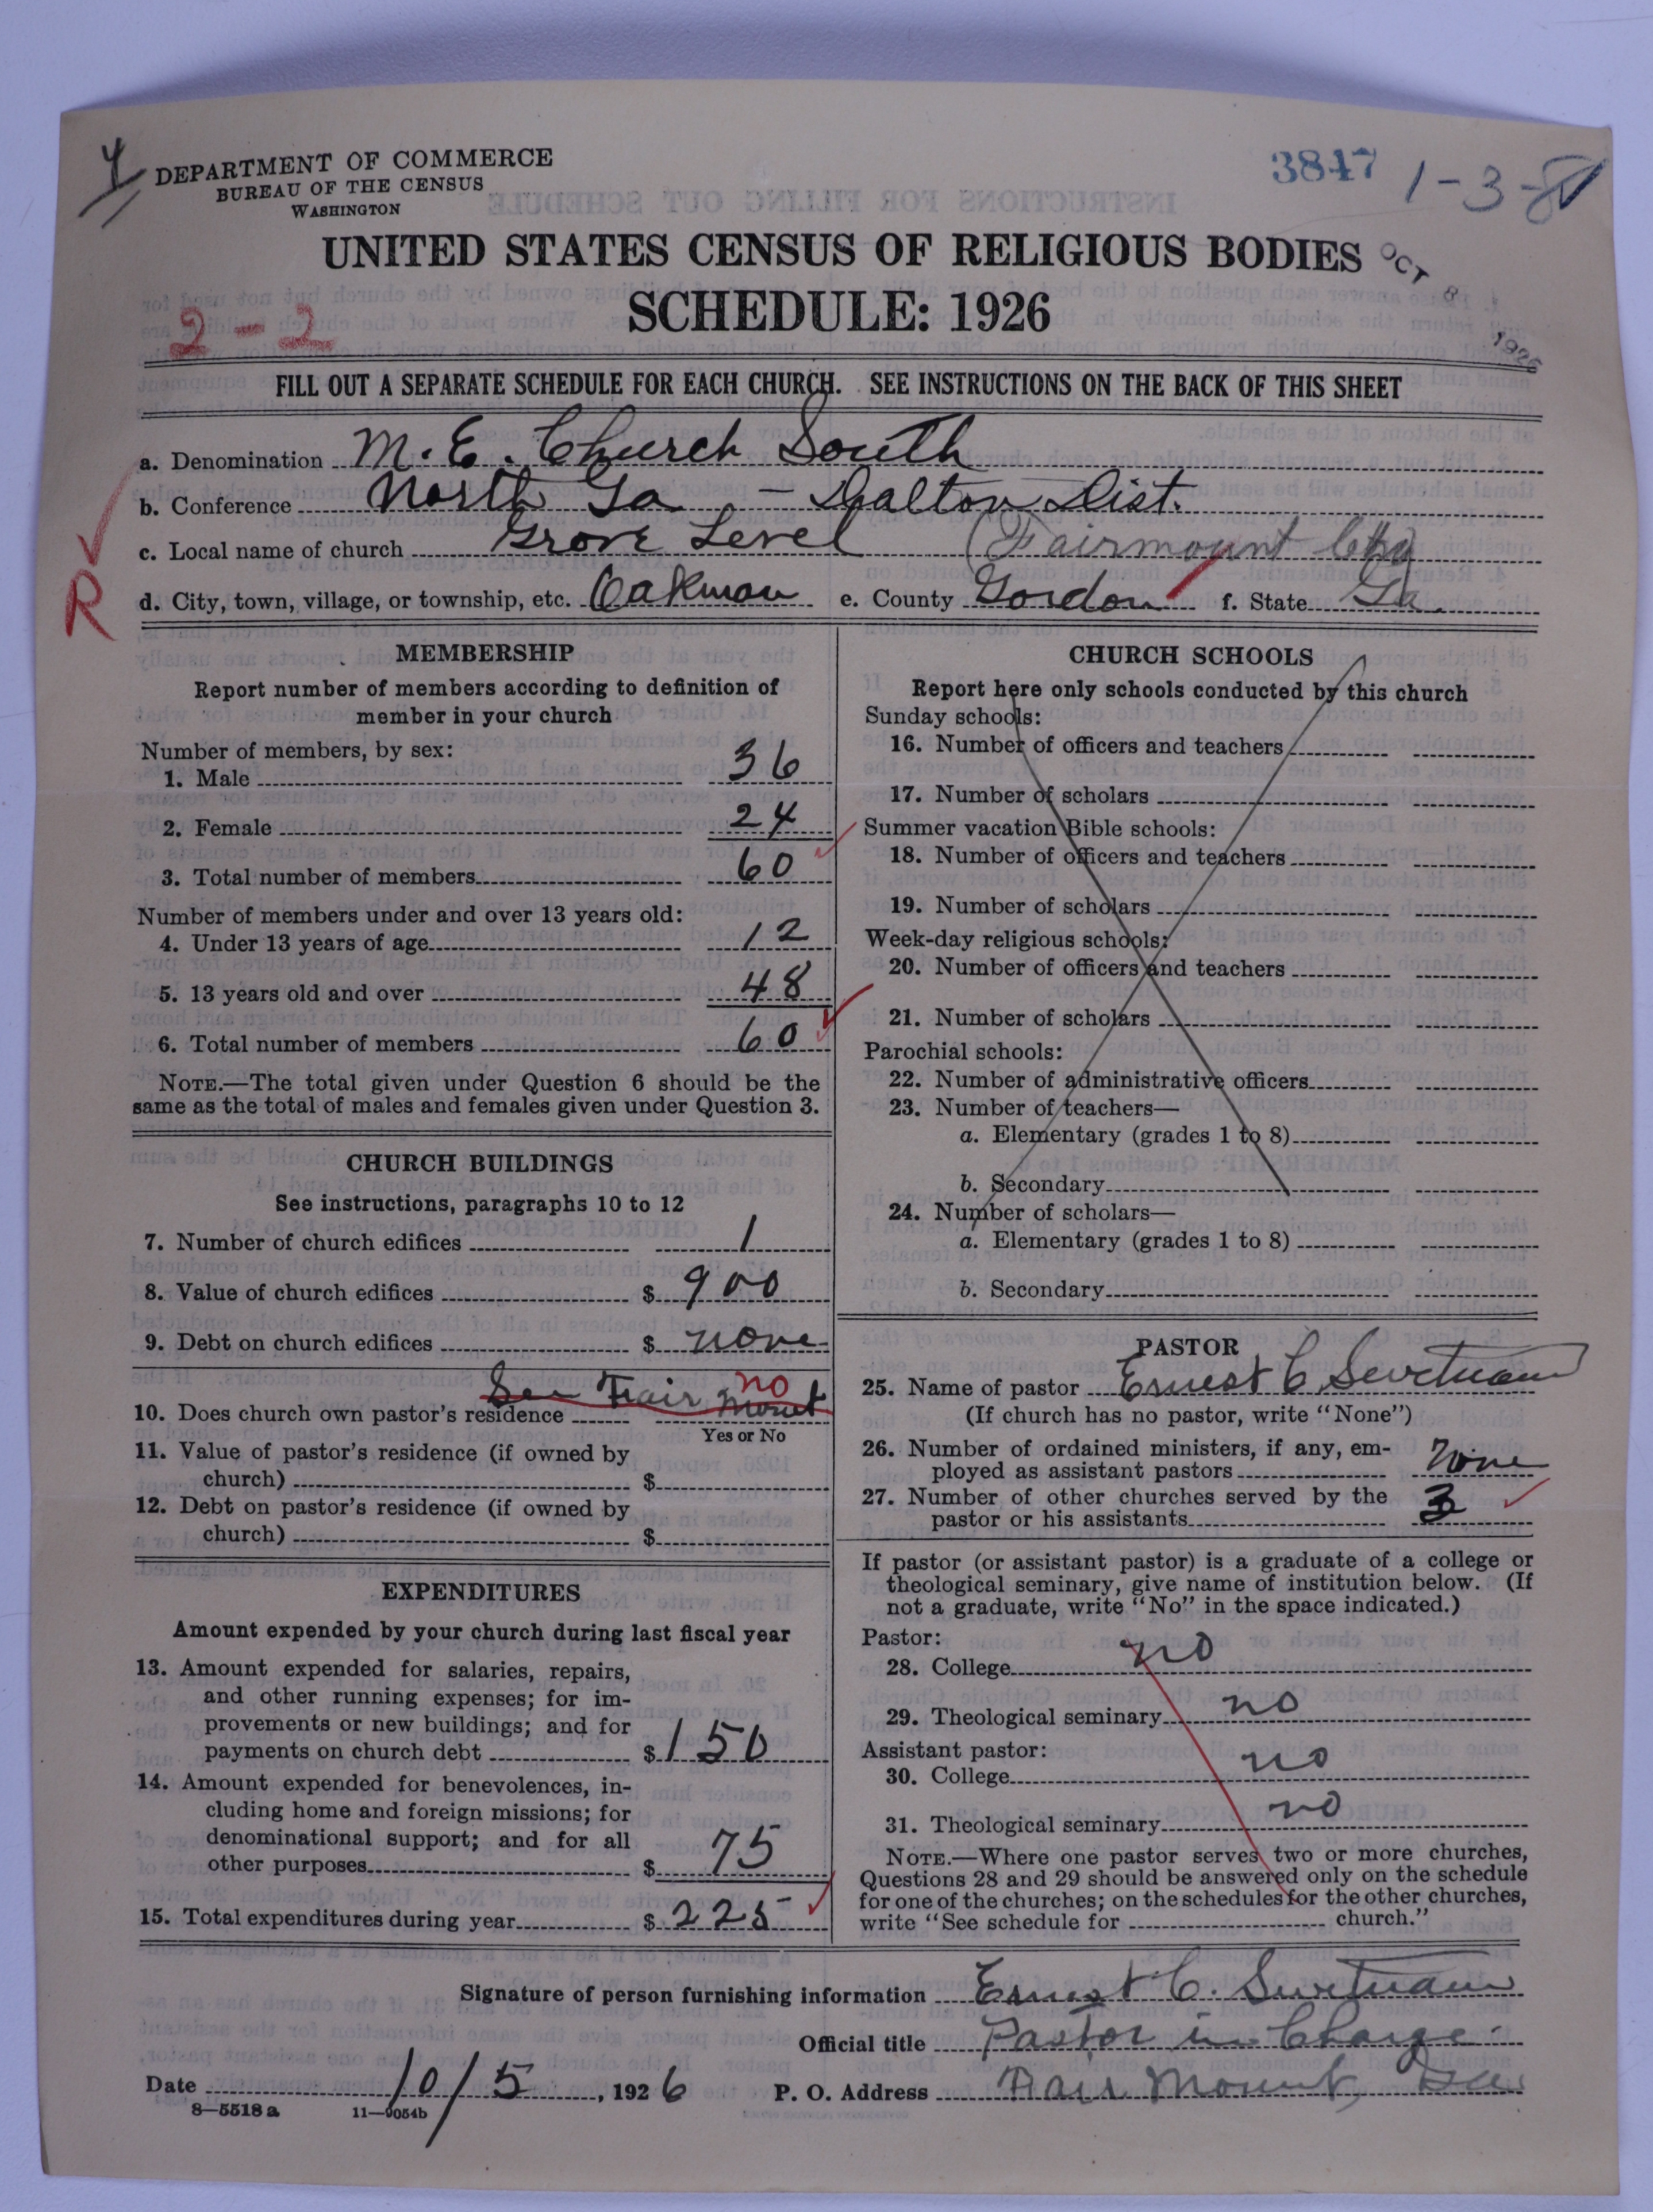 DEPARTMENT OF COMMERCE
BUREAU OF THE CENSUS
WASHINGTON
3847 1-3-
UNITED STATES CENSUS OF RELIGIOUS BODIES
OCT 8 1926
SCHEDULE: 1926
2-2
FILL OUT A SEPARATE SCHEDULE FOR EACH CHURCH. SEE INSTRUCTIONS ON THE BACK OF THIS SHEET
a. Denomination M. E. Church South
b. Conference North Ga - Dalton Dist.
c. Local name of church Grove Level (Fairmount Chg)
R
d. City, town, village, or township, etc. Oakman e. County Gordon f. State Ga.
MEMBERSHIP
Report number of members according to definition of
member in your church
Number of members, by sex:
1. Male 36
2. Female 24
3. Total number of members 60
Number of members under and over 13 years old:
4. Under 13 years of age 12
5. 13 years old and over 48
6. Total number of members 60
NOTE.—The total given under Question 6 should be the
same as the total of males and females given under Question 3.
CHURCH BUILDINGS
See instructions, paragraphs 10 to 12
7. Number of church edifices 1
8. Value of church edifices $ 900
9. Debt on church edifices $ none
See Fair Mount no
10. Does church own pastor's residence
Yes or No
11. Value of pastor's residence (if owned by
church) $
12. Debt on pastor's residence (if owned by
church) $
EXPENDITURES
Amount expended by your church during last fiscal year
13. Amount expended for salaries, repairs,
and other running expenses; for im-
provements or new buildings; and for
payments on church debt $ 150
14. Amount expended for benevolences, in-
cluding home and foreign missions; for
denominational support; and for all
other purposes $ 75
15. Total expenditures during year $ 225
CHURCH SCHOOLS
Report here only schools conducted by this church
Sunday schools:
16. Number of officers and teachers
17. Number of scholars
Summer vacation Bible schools:
18. Number of officers and teachers
19. Number of scholars
Week-day religious schools:
20. Number of officers and teachers
21. Number of scholars
Parochial schools:
22. Number of administrative officers
23. Number of teachers—
a. Elementary (grades 1 to 8)
b. Secondary
24. Number of scholars—
a. Elementary (grades 1 to 8)
b. Secondary
PASTOR
25. Name of pastor Ernest C
(If church has no pastor, write "None")
26. Number of ordained ministers, if any, em-
ployed as assistant pastors None
27. Number of other churches served by the
pastor or his assistants 3
If pastor (or assistant pastor) is a graduate of a college or
theological seminary, give name of institution below. (If
not a graduate, write "No" in the space indicated.)
Pastor:
28. College no
29. Theological seminary no
Assistant pastor:
30. College no
31. Theological seminary no
NOTE.—Where one pastor serves two or more churches,
Questions 28 and 29 should be answered only on the schedule
for one of the churches; on the schedules for the other churches,
write "See schedule for church."
Signature of person furnishing information Ernest C.
Official title Pastor in Charge
Date 10/5, 1926 P. O. Address Fair Mount, Ga
8—5518 a 11—9054b